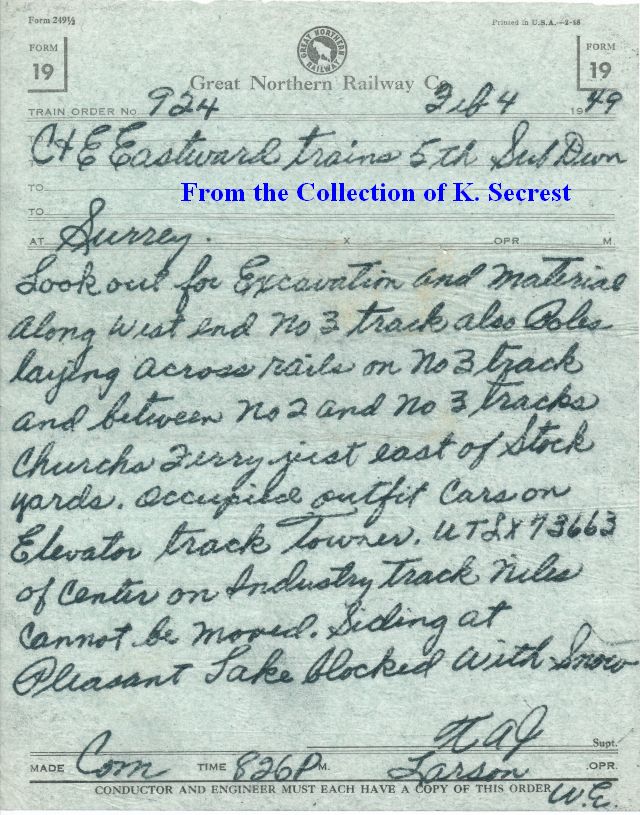 Form 249½
Printed in U.S.A.—2-48
FORM
19
GREAT NORTHERN RAILWAY
FORM
19
Great Northern Railway Co.
TRAIN ORDER No. 924 Feb 4 1949
C+E Eastward trains 5th Sub Divn
TO
From the Collection of K. Secrest
TO
AT Surrey. X OPR. M.
Look out for Excavation and Material
Along West end No 3 track also Poles
laying Across rails on No 3 track
and between No 2 and No 3 tracks
Churchs Ferry just east of Stock
yards. Occupied outfit Cars on
Elevator track Towner. UTLX 73663
of Center on Industry track Niles
Cannot be Moved. Siding at
Pleasant Lake blocked With Snow
Supt.
MADE Com TIME 826P M. Larson OPR.
CONDUCTOR AND ENGINEER MUST EACH HAVE A COPY OF THIS ORDER
W.E.